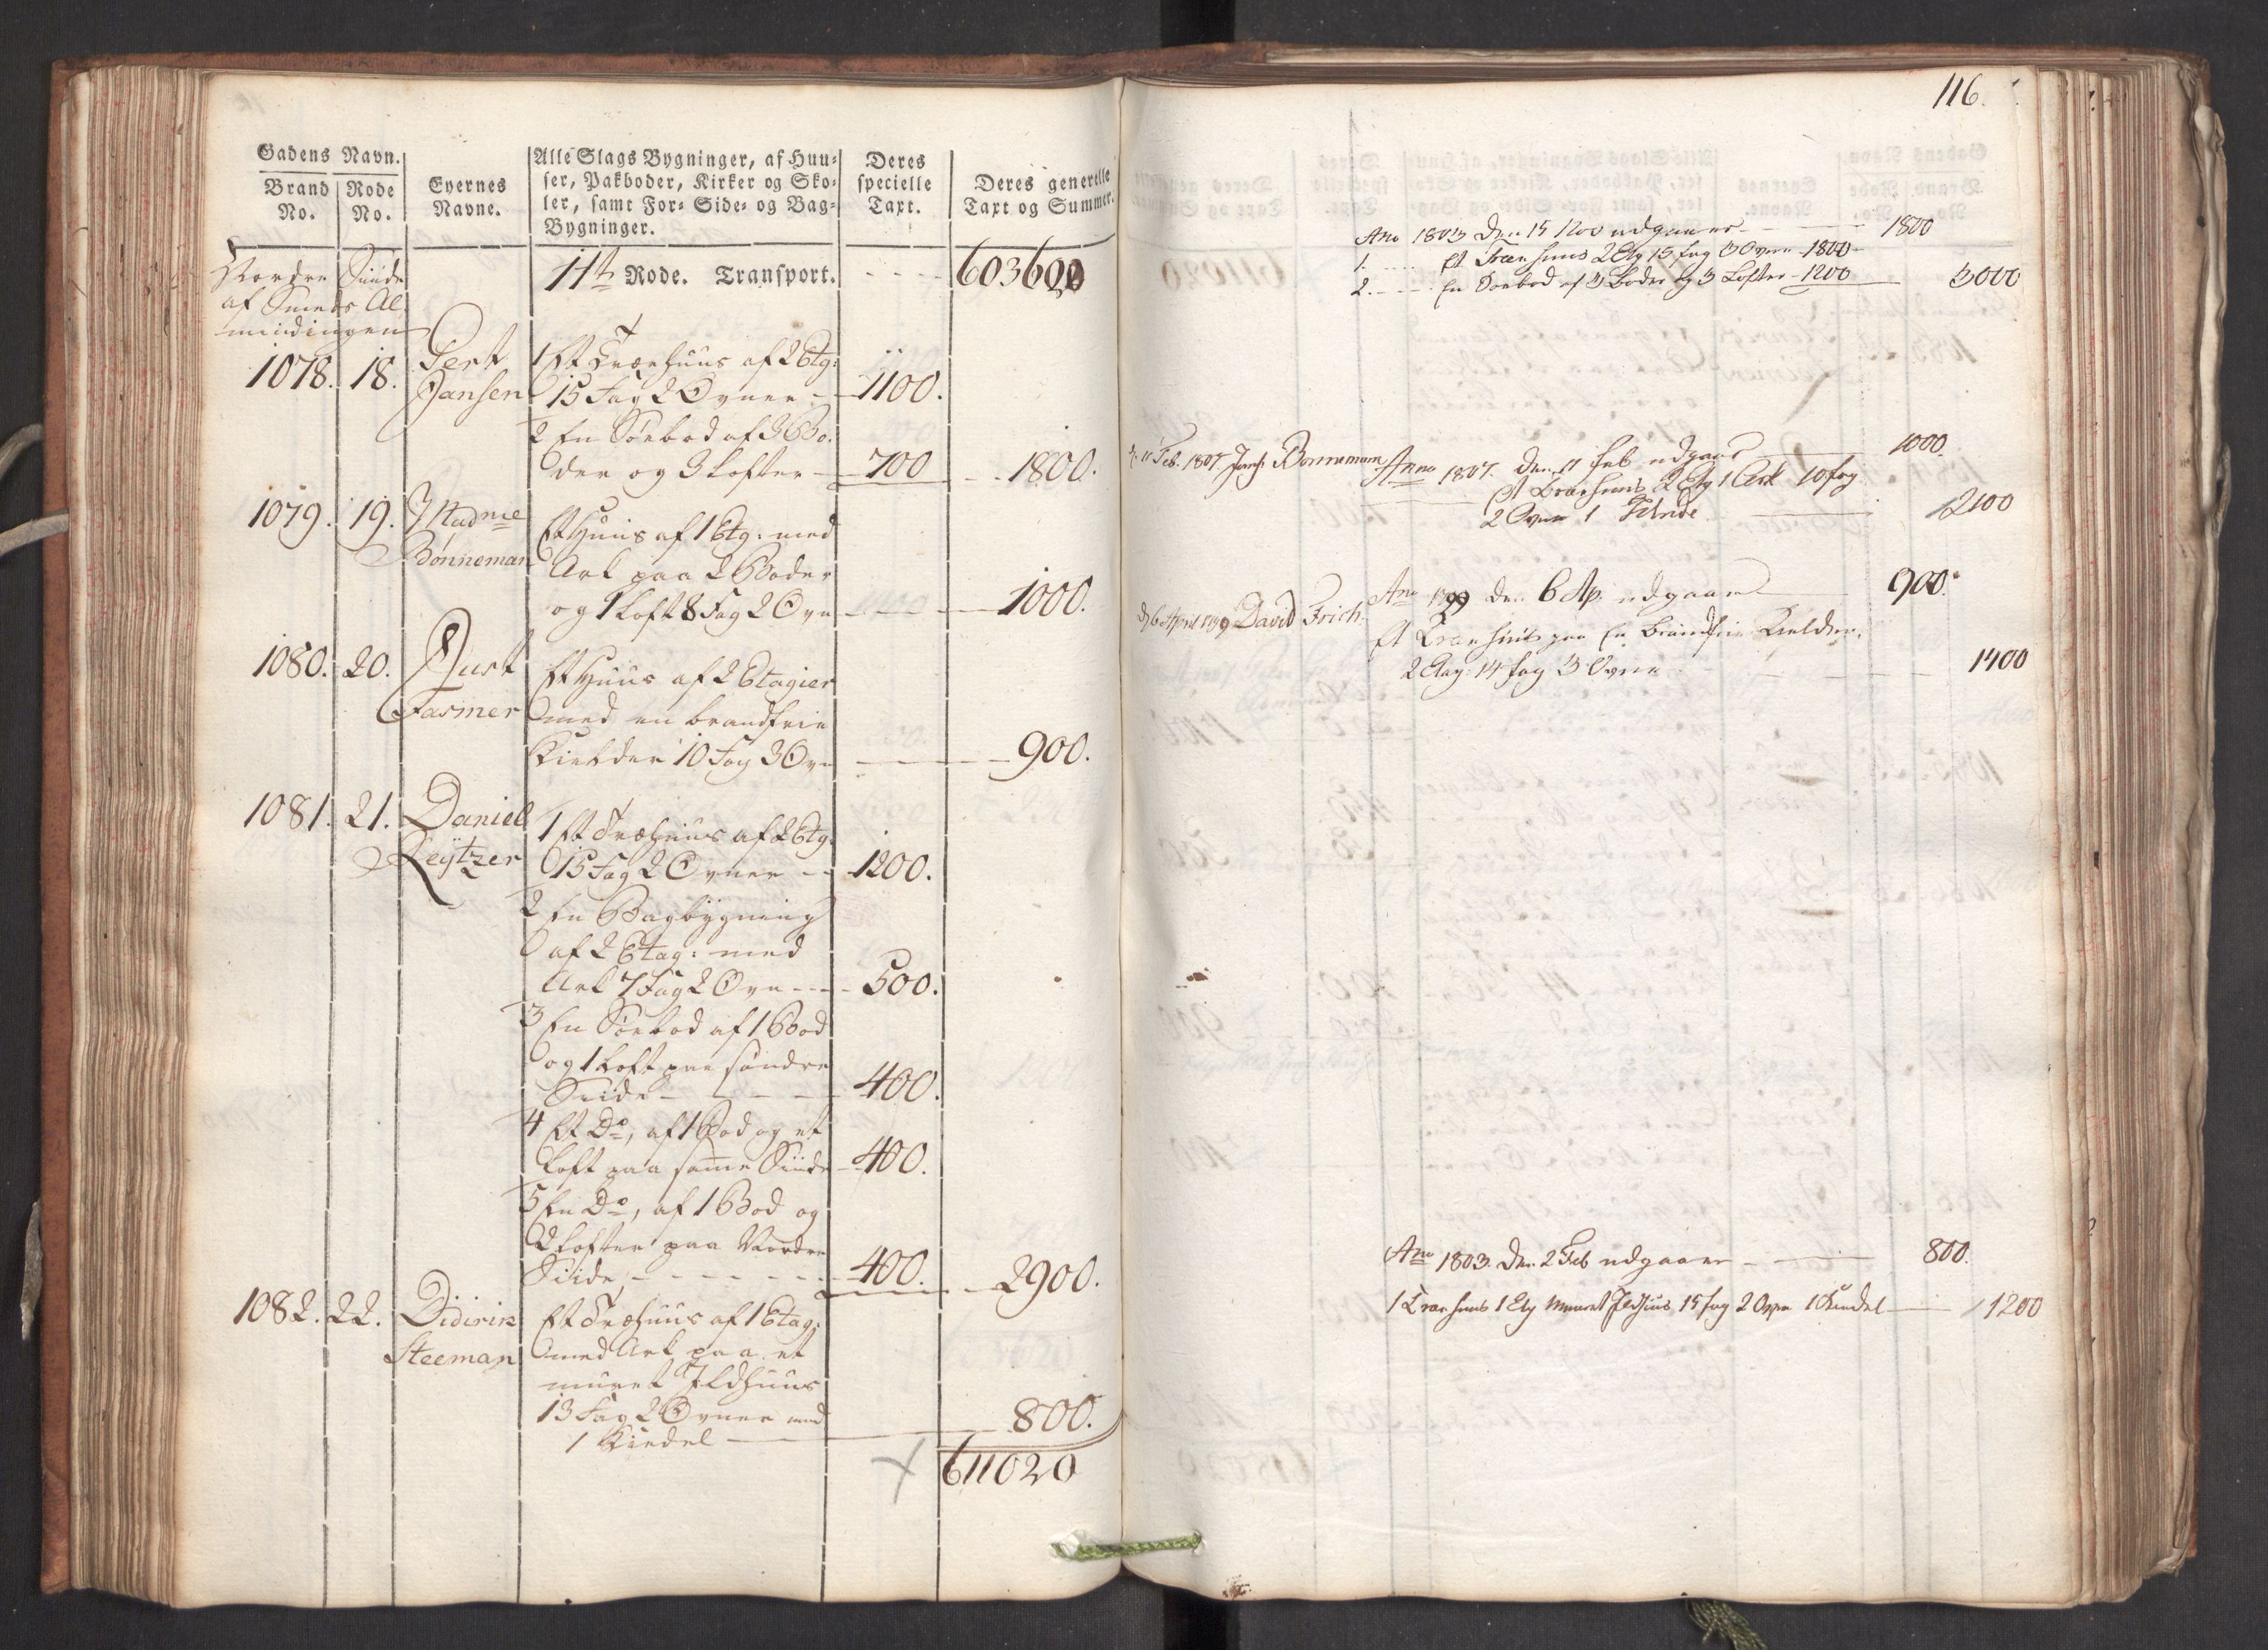 Gadens Navn.
Brand No.
Rode No.
Eyernes Navne.
Alle Slags Bygninger, af Huu-
ser, Pakboder, Kirker og Sko-
ler, samt For- Side- og Bag-
Bygninger.
Deres specielle Taxt.
Deres generelle Taxt og Summer.
Nordre Siide
af Smeds Al
mindingen
11te Rode. Transport. 603600
1078. 18. Gert
Jansen
1 Et Træehuus af 2 Etg:
15 Fag 2 Ovner - 1100.
2 En Søebod af 3 Bo-
der og 3 Lofter - 700 - 1800.
1079. 19. Madme
Bönneman
Et Huus af 1 Etg: med
Ark paa 2 Boder
og 1 Loft 8 Fag 2 Ovn - 1000.
1080. 20. Just
Fasmer
Et Huus af 2 Etagier
med en brandfrie
Kielder 10 Fag 3 Ovn - 900.
1081. 21. Daniel
Reÿtzer
1 Et Træhuus af 2 Etg:
15 Fag 2 Ovner - - 1200.
2 En Bagbÿgning
af 2 Etag: med
Ark 7 Fag 2 Ovn - - - 500.
3 En Søebod af 1 Bod
og 1 Loft paa søndre
Siide - - - - 400.
4 Et Do, af 1 Bod og et
Loft paa samme Siide - 400.
5 En Do, af 1 Bod og
2 Lofter paa Nordre
Siide - - - - - - 400. - 2900.
1082. 22. Didirik
Steeman
Et Træhuus af 1 Etag:
med Ark paa et
muret Ildhuus
13 Fag 2 Ovner med
1 Kiedel - 800.
611020
116.
Ano 1803 den 15 Nov udgaaer - 1800
1. Et Træehuus 2 Etg 15 fag 3 Ovne - 1800 -
2. - En Søebod af 3 Boder og 3 Lofter - 1200 - 3000
d. 11 Feb. 1807. Bonneman
Anno 1807. den 11 Feb udgaar 1000.
Et Træehuus 2 Etg 1 Ark 10 fag
2 Ovne 1 - 2100
d 6 April 1799 David Frich.
Ano 1799 den 6 Ap. udgaar 900.
Et Træehuus paa En brandfrie Kielder,
2 Etag: 14 fag 3 Ovne - 1400
Ano 1803. den 2 Feb udgaaer - 800.
1 Træehuus 1 Etg muuret Ildhuus, 15 fag 2 Ovne 1 Kiedel - 1200